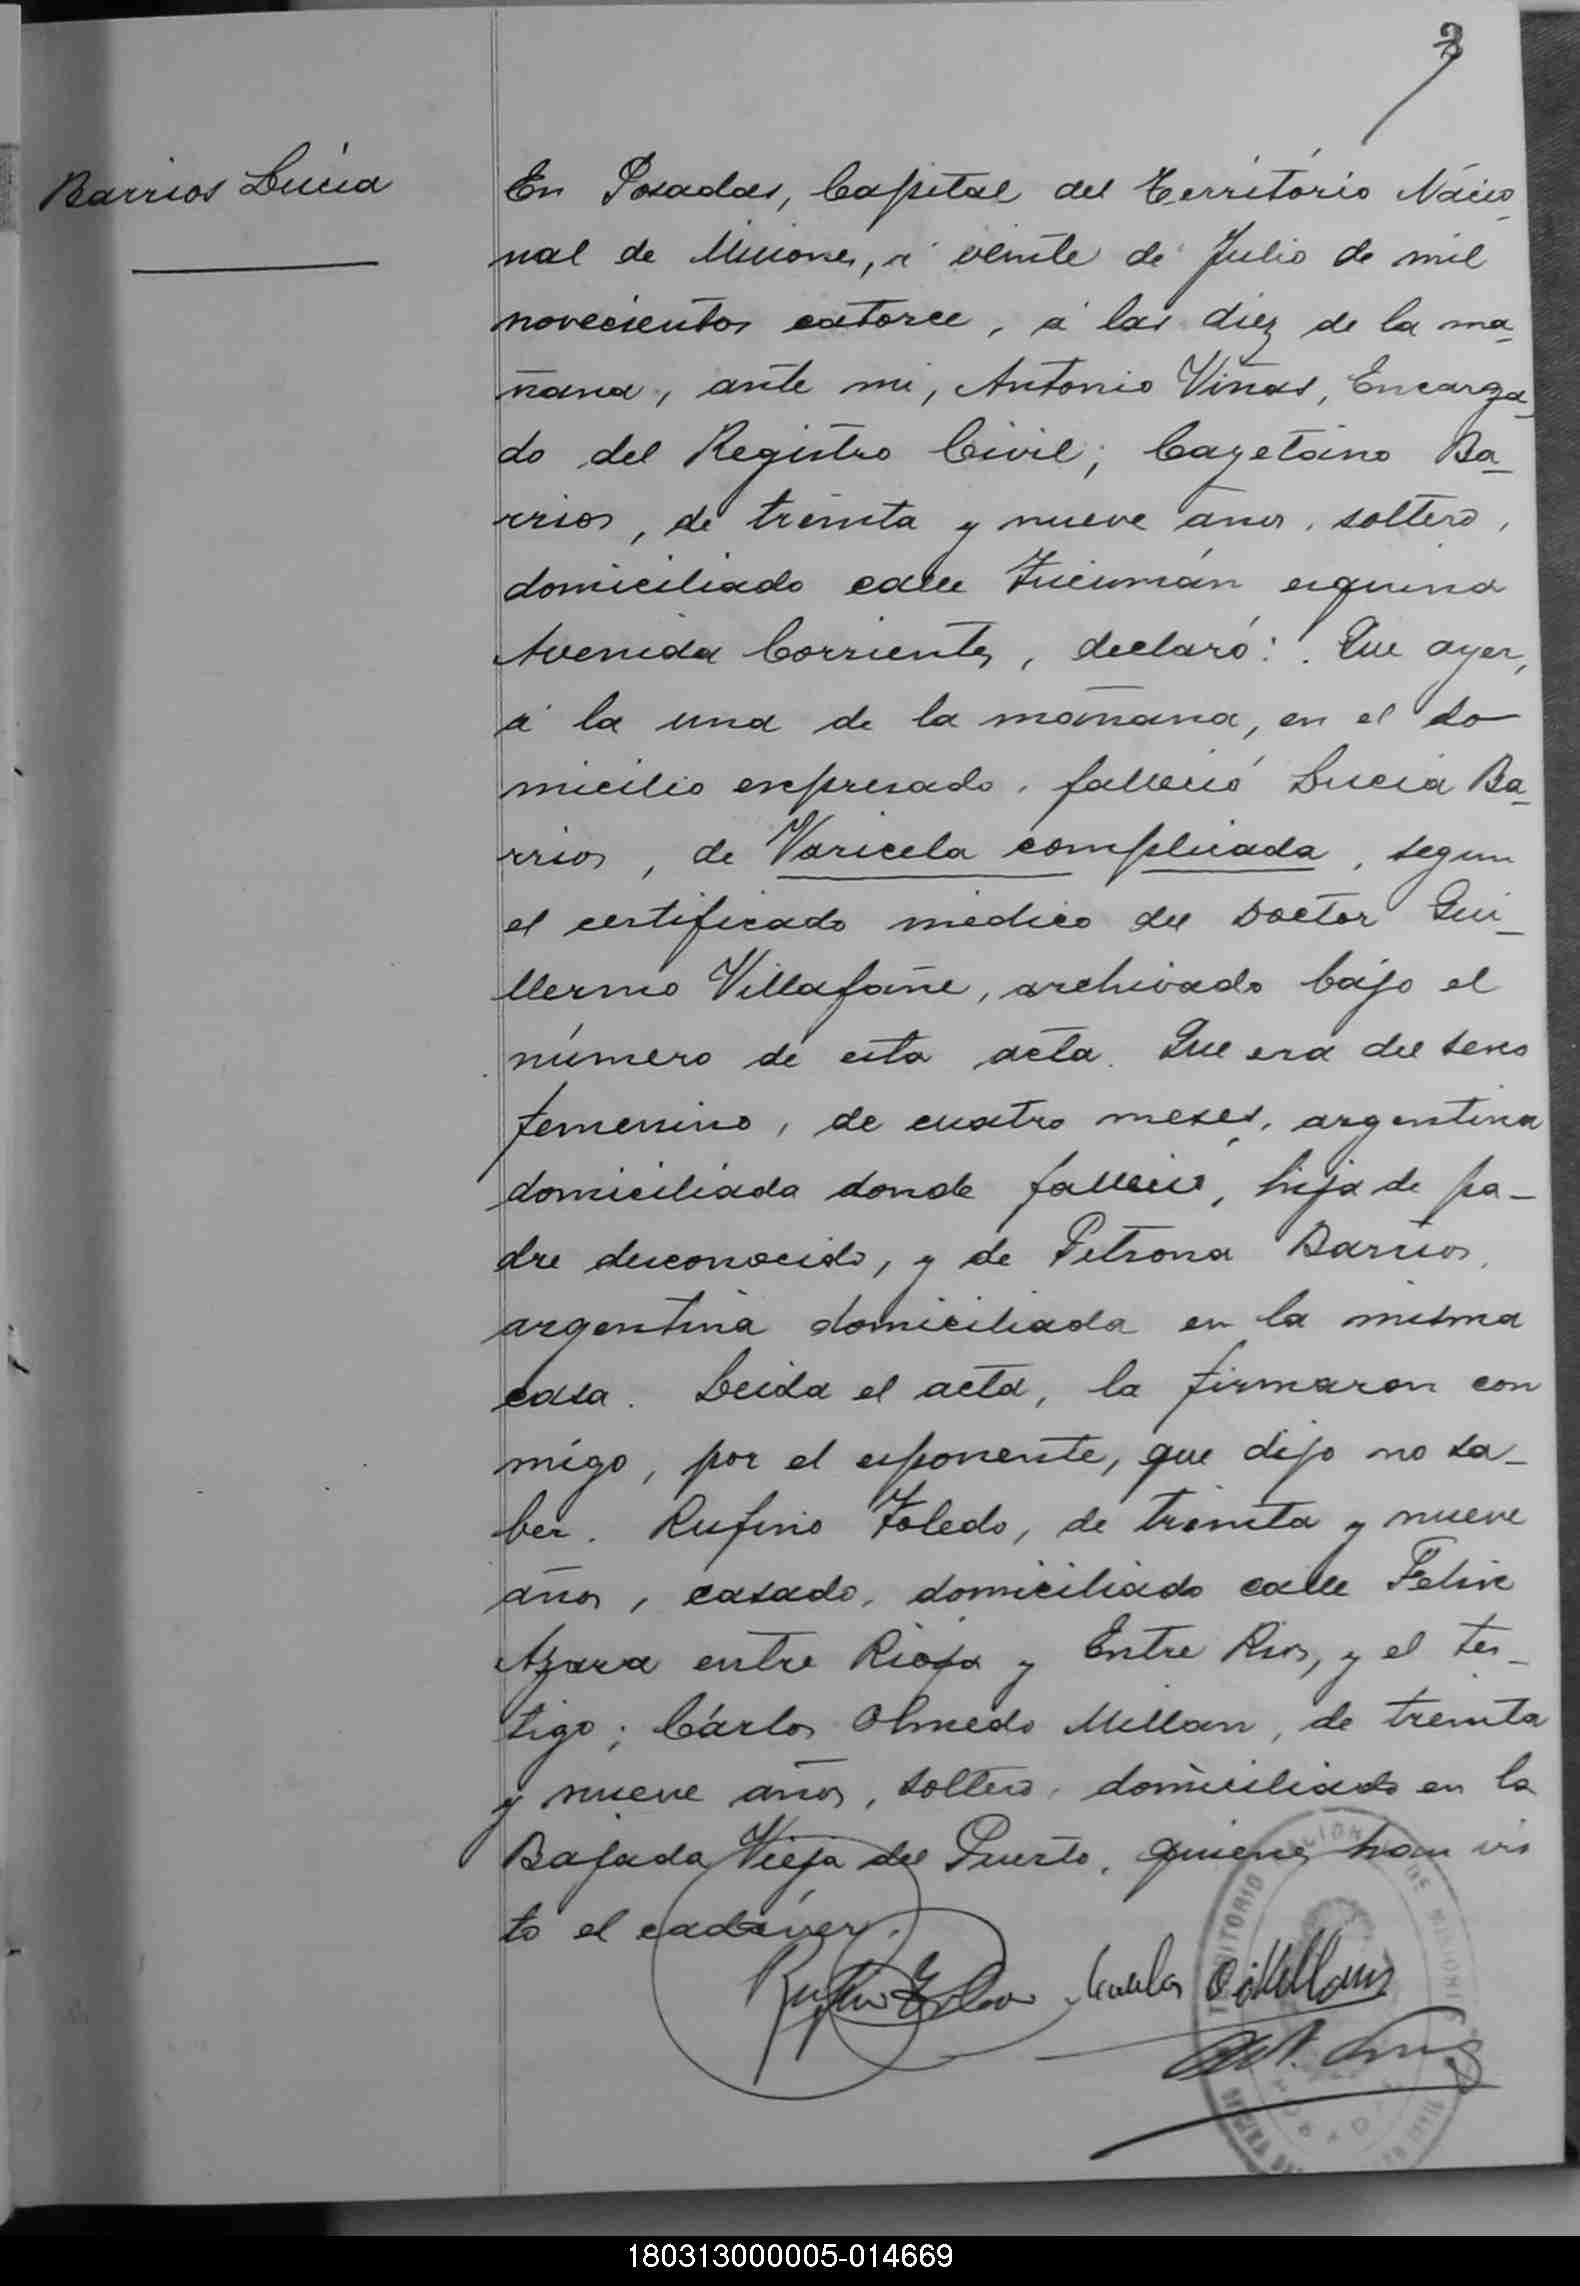 Barrios Lucía
En Posadas, Capital del Território Nácio-
nal de Misiones, á veinte de Julio de mil
novecientos catorce, á las diez de la ma-
ñana, ante mi, Antonio Viñas, Encarga-
do del Registro Civil; Cayetano Ba-
rrios, de treinta y nueve años, soltero,
domiciliado calle Tucumán esquina
Avenida Corrientes, declaró: Que ayer,
á la una de la mañana, en el do-
micilio expresado, falleció Lucia Ba-
rrios, de Varicela complicada, segun
el certificado médico del Doctor Gui-
llermo Villafañe, archivado bajo el
número de esta acta. Que era del sexo
femenino, de cuatro meses, argentina
domiciliada donde falleció, hija de pa-
dre desconocido, y de Petrona Barrios,
argentina domiciliada en la misma
casa. Leida el acta, la firmaron con
migo, por el esponente, que dijo no sa-
ber. Rufino Toledo, de treinta y nueve
años, casado, domiciliado calle Felix
Azara entre Rioja y Entre Rios, y el tes-
tigo; Cárlos Olmedo Millan, de treinta
y nueve años, soltero, domiciliado en la
Bajada Vieja del Puerto, quienes han vis
to el cadáver.
Rufino Toledo Carlos O. Millan
180313000005-014669